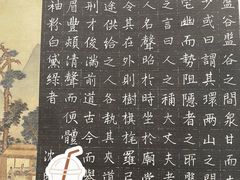 盤谷盤谷之
少或曰謂其環兩山之間
幽而勢阻隱者之所盤
之言曰人之稱大夫者
人名聲昭於時坐於廟
令其在外則樹旗旄羅弓
途供給之人各執其物
刑才俊滿前道古今而譽
眉豐頰清聲而便體
袖粉白黛綠者